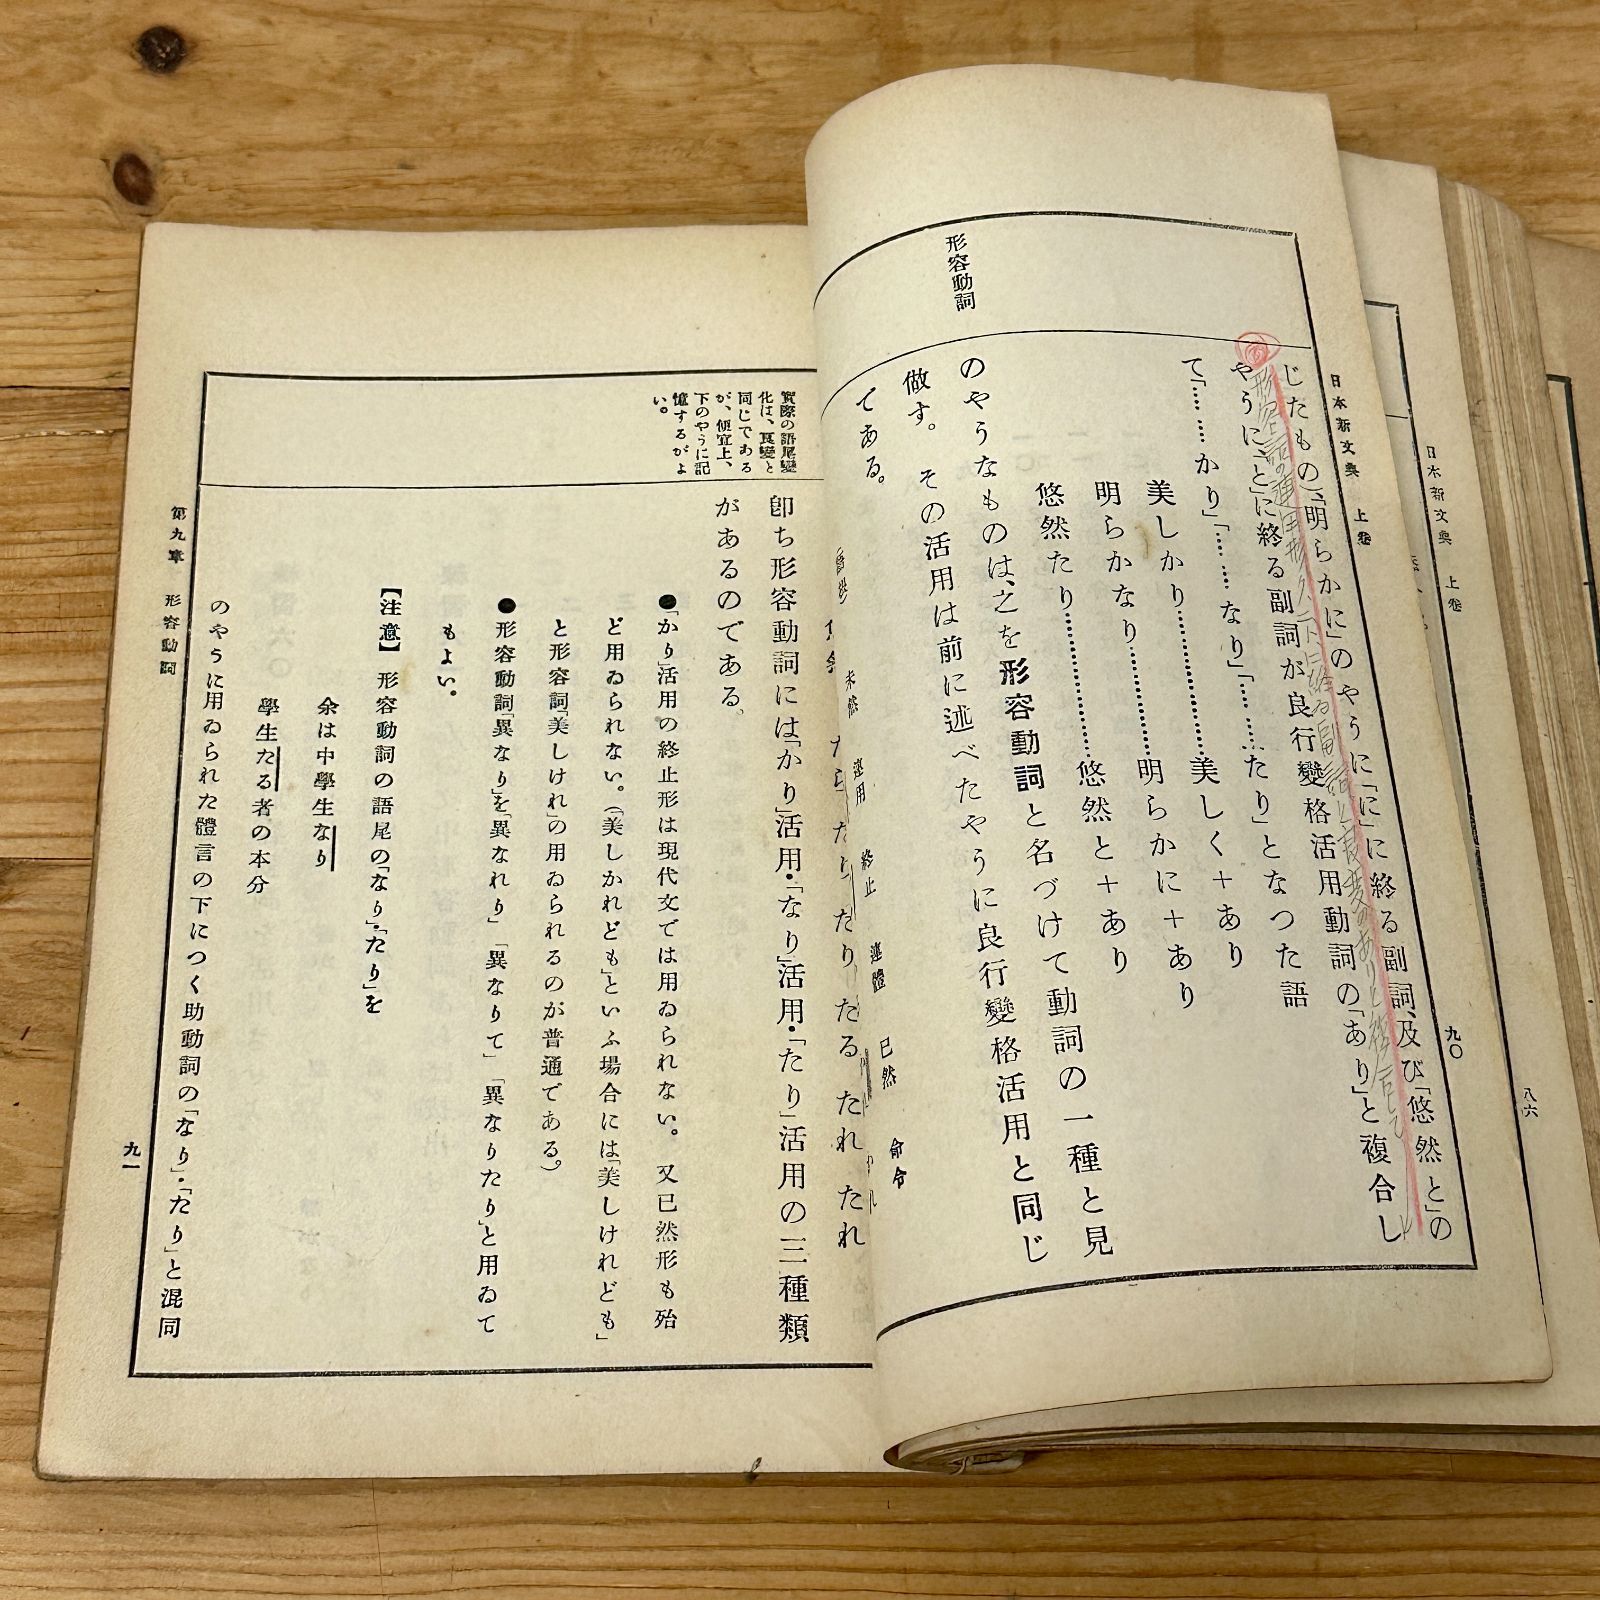 日本新文典 上卷
八六
日本新文典 上卷
九〇
形容動詞
じたもの)、「明らかに」のやうに「に」に終る副詞、及び「悠然と」の
やうに、「と」に終る副詞が良行變格活用動詞の「あり」と複合し
て「……かり」「……なり」「……たり」となつた語
美しかり……………美しく＋あり
明らかなり……………明らかに＋あり
悠然たり……………悠然と＋あり
のやうなものは、之を形容動詞と名づけて動詞の一種と見
做す。その活用は前に述べたやうに良行變格活用と同じ
である。
未然
連用
終止
連體
已然
命令
たら
たり
たり
たる
たれ
たれ
實際の語尾變
化は、良變と
同じである
が、便宜上、
下のやうに記
憶するがよ
い。
卽ち形容動詞には「かり」活用・「なり」活用・「たり」活用の三種類
があるのである。
●「かり」活用の終止形は現代文では用ゐられない。又已然形も殆
ど用ゐられない。(「美しかれども」といふ場合には「美しけれども」
と形容詞「美しけれ」の用ゐられるのが普通である。)
●形容動詞「異なり」を「異なれり」「異なりて」「異なりたり」と用ゐて
もよい。
【注意】 形容動詞の語尾の「なり」・「たり」を
余は中學生なり
學生たる者の本分
のやうに用ゐられた體言の下につく助動詞の「なり」・「たり」と混同
第九章 形容動詞
九一